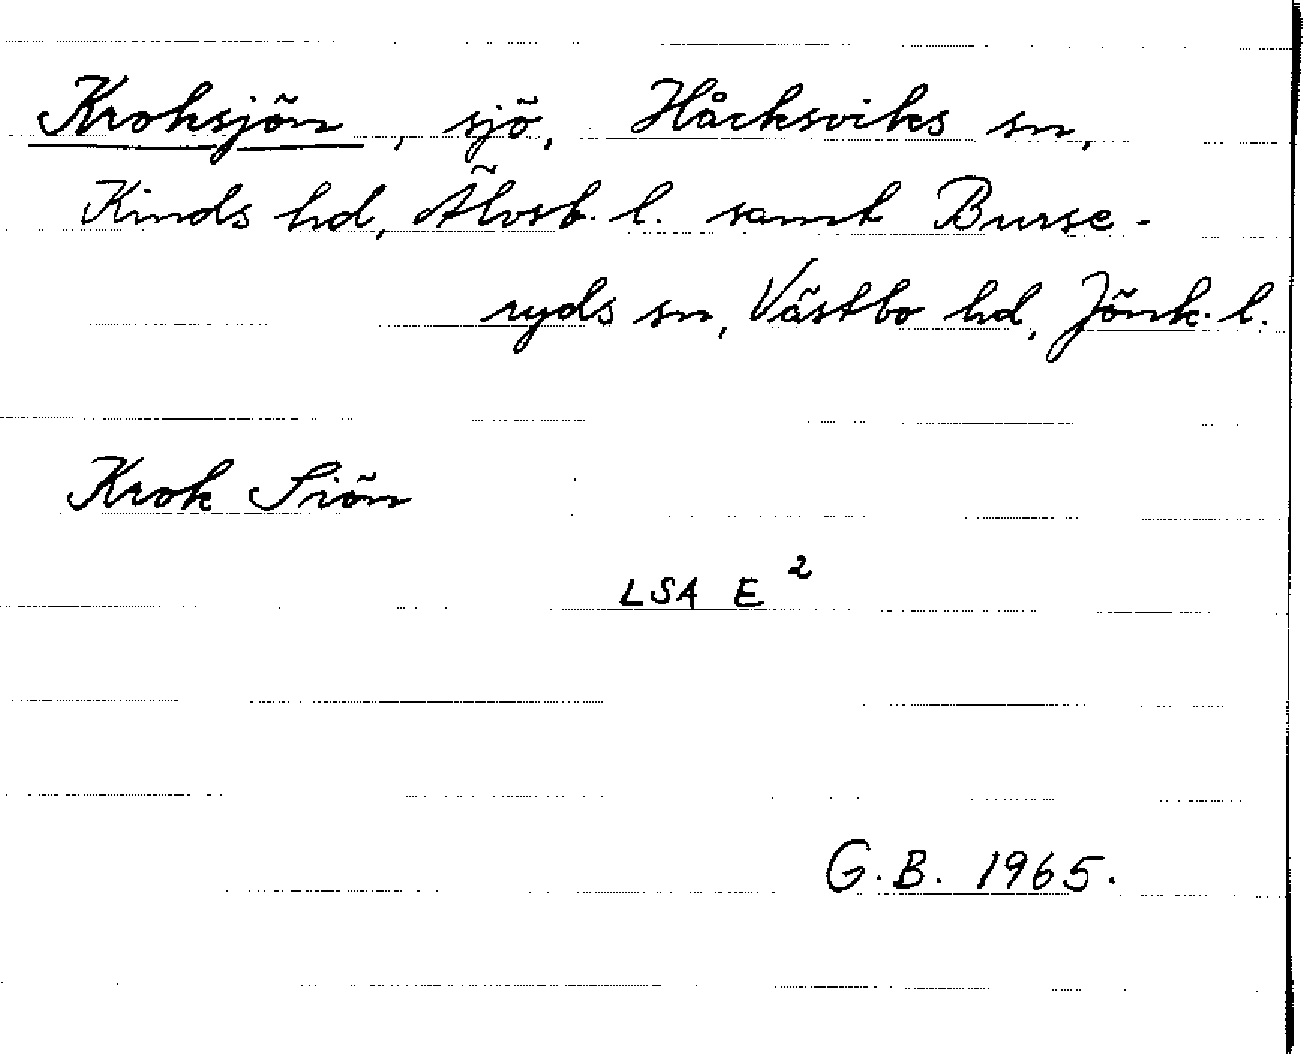 Kroksjön, sjö, Håcksviks sn,
Kinds hd, Älvsb. l. samt Burse-
ryds sn, Västbo hd, Jönk. l.
Krok Siön
LSA E²
G.B. 1965.